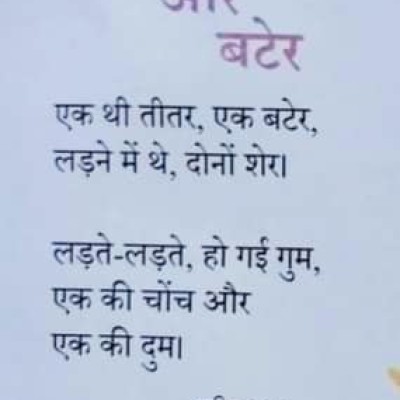 और
बटेर
एक थी तीतर, एक बटेर,
लड़ने में थे, दोनों शेर।
लड़ते-लड़ते, हो गई गुम,
एक की चोंच और
एक की दुम।